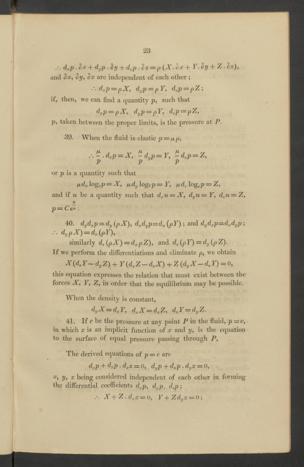 23
∴ dₓp . ∂x + d_y p . ∂y + d_z p . ∂z = ρ (X . ∂x + Y . ∂y + Z . ∂z),
and ∂x, ∂y, ∂z are independent of each other ;
∴ dₓp = ρX, d_y p = ρY, d_z p = ρZ ;
if, then, we can find a quantity p, such that
dₓp = ρX, d_y p = ρY, d_z p = ρZ,
p, taken between the proper limits, is the pressure at P.
39. When the fluid is elastic p = μρ,
∴ μ/p . dₓp = X, μ/p d_y p = Y, μ/p d_z p = Z,
or p is a quantity such that
μ dₓ logₑ p = X, μ d_y logₑ p = Y, μ d_z logₑ p = Z,
and if u be a quantity such that dₓu = X, d_y u = Y, d_z u = Z,
p = Cε^(u/μ).
40. d_y dₓp = d_y (ρX), dₓ d_y p = dₓ (ρY) ; and d_y dₓp = dₓ d_y p ;
∴ d_y (ρX) = dₓ (ρY),
similarly d_z (ρX) = dₓ (ρZ), and d_z (ρY) = d_y (ρZ).
If we perform the differentiations and eliminate ρ, we obtain
X (d_z Y − d_y Z) + Y (dₓZ − d_z X) + Z (d_y X − dₓY) = 0,
this equation expresses the relation that must exist between the
forces X, Y, Z, in order that the equilibrium may be possible.
When the density is constant,
d_y X = dₓY, d_z X = dₓZ, d_z Y = d_y Z.
41. If c be the pressure at any point P in the fluid, p = c,
in which z is an implicit function of x and y, is the equation
to the surface of equal pressure passing through P.
The derived equations of p = c are
dₓp + d_z p . dₓz = 0, d_y p + d_z p . d_y z = 0,
x, y, z being considered independent of each other in forming
the differential coefficients dₓp, d_y p, d_z p ;
∴ X + Z . dₓz = 0, Y + Z d_y z = 0 ;